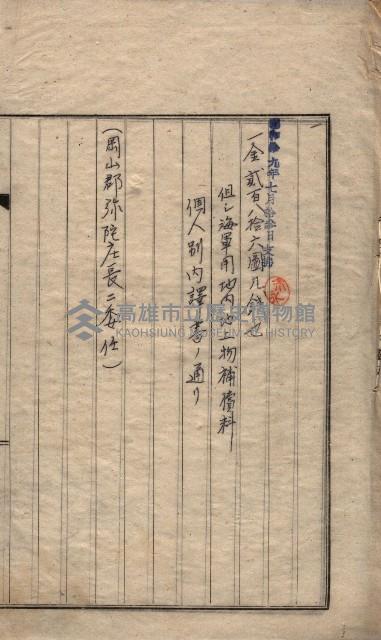 一金貳百八拾六圓九錢也
但シ海軍用地內地上物補償料
個人別內譯書ノ通リ
(岡山郡弥陀庄長ニ委任)
高雄市立歷史博物館
KAOHSIUNG MUSEUM OF HISTORY